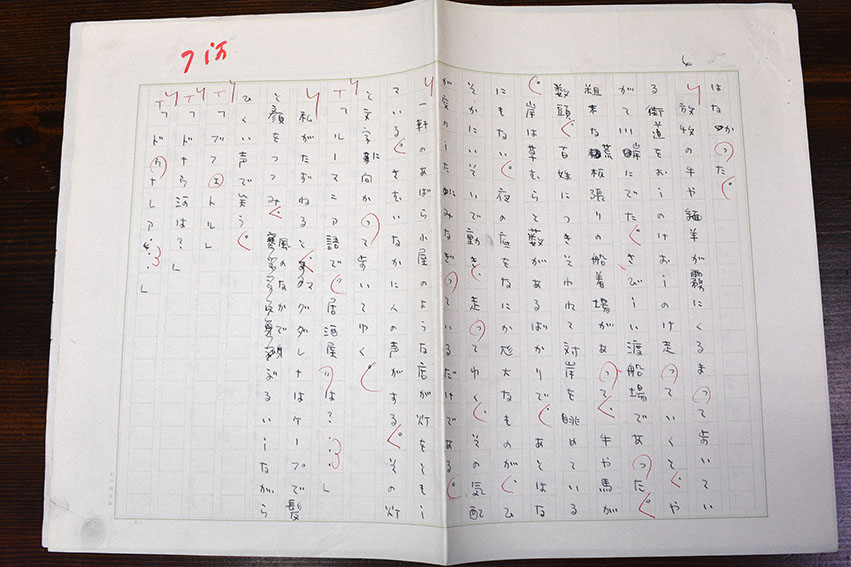 4
7ポ
はなかった。
放牧の牛や緬羊が霧にくるまって歩いてい
る街道をおしのけおしのけ走っていくと、や
がて岸にでた。さびしい渡船場であった。
粗末な荒板張りの船着場があって、牛や馬が
数頭、百姓につきそわれて対岸を眺めている
。岸は草むらと藪があるばかりで、あとはな
にもない。夜の底をなにか尨大なものが、ひ
そかにいそいで動き、走ってゆく。その気配
が のしたにみなぎっているだけである。
一軒のあばら小屋のような店が灯をともし
ている。さむいなかに人の声がする。その灯
と文字に向かって歩いてゆく。
「ルーマニア語で〝居酒屋〟は?……」
私がたずねると、マグダレナはケープで髪
と顔をつつみ、風のなかで身ぶるいしながら
ひくい声で笑う。
「ブフェトル」
「ドナウ河は?」
「ドゥナレア……」